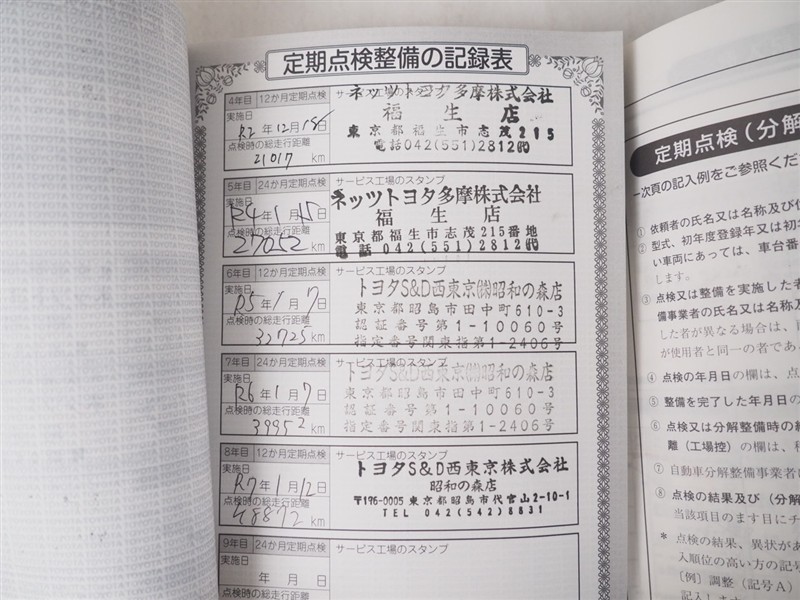 定期点検整備の記録表
4年目 12か月定期点検 サービス工場のスタンプ
実施日
R2年12月15日
点検時の総走行距離
21017 km
ネッツトヨタ多摩株式会社
福生店
東京都福生市志茂215
電話042(551)2812㈹
5年目 24か月定期点検 サービス工場のスタンプ
実施日
R4年1月15日
点検時の総走行距離
27052 km
ネッツトヨタ多摩株式会社
福生店
東京都福生市志茂215番地
電話042(551)2812㈹
6年目 12か月定期点検 サービス工場のスタンプ
実施日
R5年1月7日
点検時の総走行距離
32725 km
トヨタS&D西東京㈱昭和の森店
東京都昭島市田中町610-3
認証番号第1-10060号
指定番号関東指第1-2406号
7年目 24か月定期点検 サービス工場のスタンプ
実施日
R6年1月7日
点検時の総走行距離
39952 km
トヨタS&D西東京㈱昭和の森店
東京都昭島市田中町610-3
認証番号第1-10060号
指定番号関東指第1-2406号
8年目 12か月定期点検 サービス工場のスタンプ
実施日
R7年1月12日
点検時の総走行距離
48872 km
トヨタS&D西東京株式会社
昭和の森店
〒196-0005 東京都昭島市代官山2-10-1
TEL 042(542)8831
9年目 24か月定期点検 サービス工場のスタンプ
実施日
年 月 日
点検時の総走行距離
km
定期点検(分解
次頁の記入例をご参照くだ
① 依頼者の氏名又は名称及び住
② 型式、初年度登録年又は初年
い車両にあっては、車台番
します。
③ 点検又は整備を実施した者
備事業者の氏名又は名称及
した者が異なる場合は、
が使用者と同一の者であ
④ 点検の年月日の欄は、点
⑤ 整備を完了した年月日の
⑥ 点検又は分解整備時の総
離(工場控)の欄は、
⑦ 自動車分解整備事業者
⑧ 点検の結果及び(分解
当該項目のます目にチ
* 点検の結果、異状があ
入順位の高い方の記号
〔例〕調整(記号A)
記入します